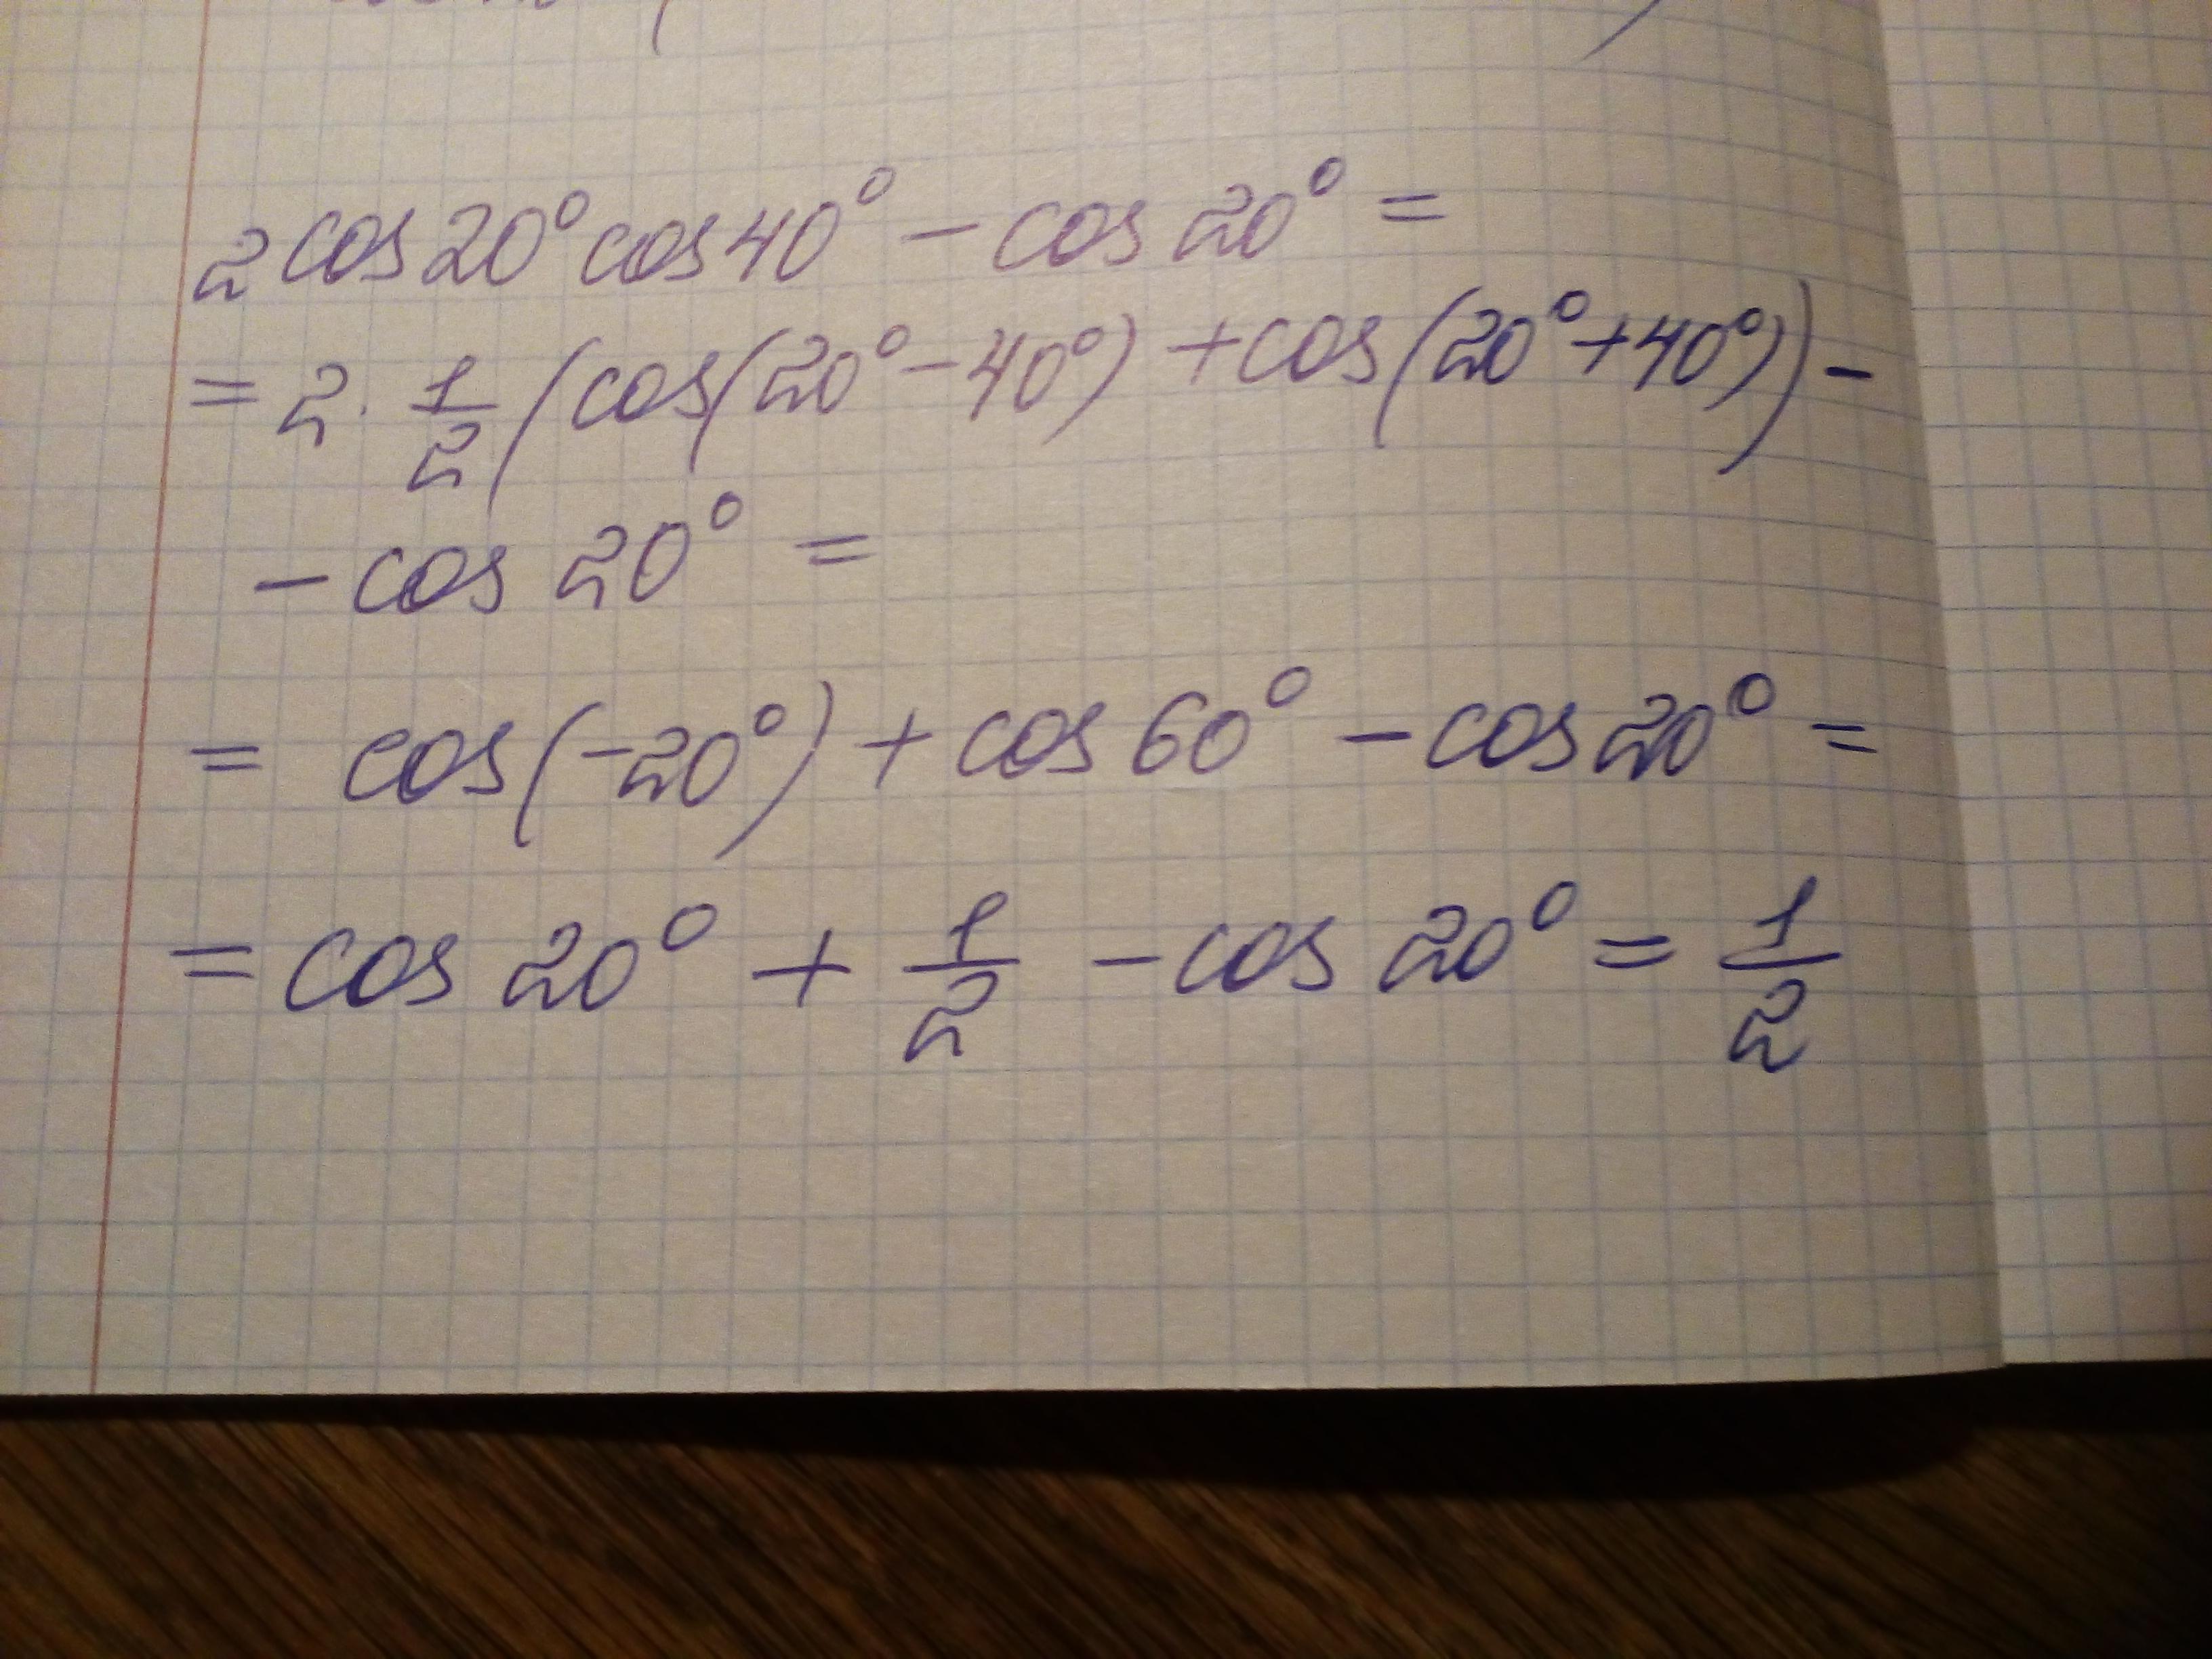 2 cos 20° cos 40° − cos 20° =
= 2 · 1/2 (cos(20° − 40°) + cos(20° + 40°)) −
− cos 20° =
= cos(−20°) + cos 60° − cos 20° =
= cos 20° + 1/2 − cos 20° = 1/2